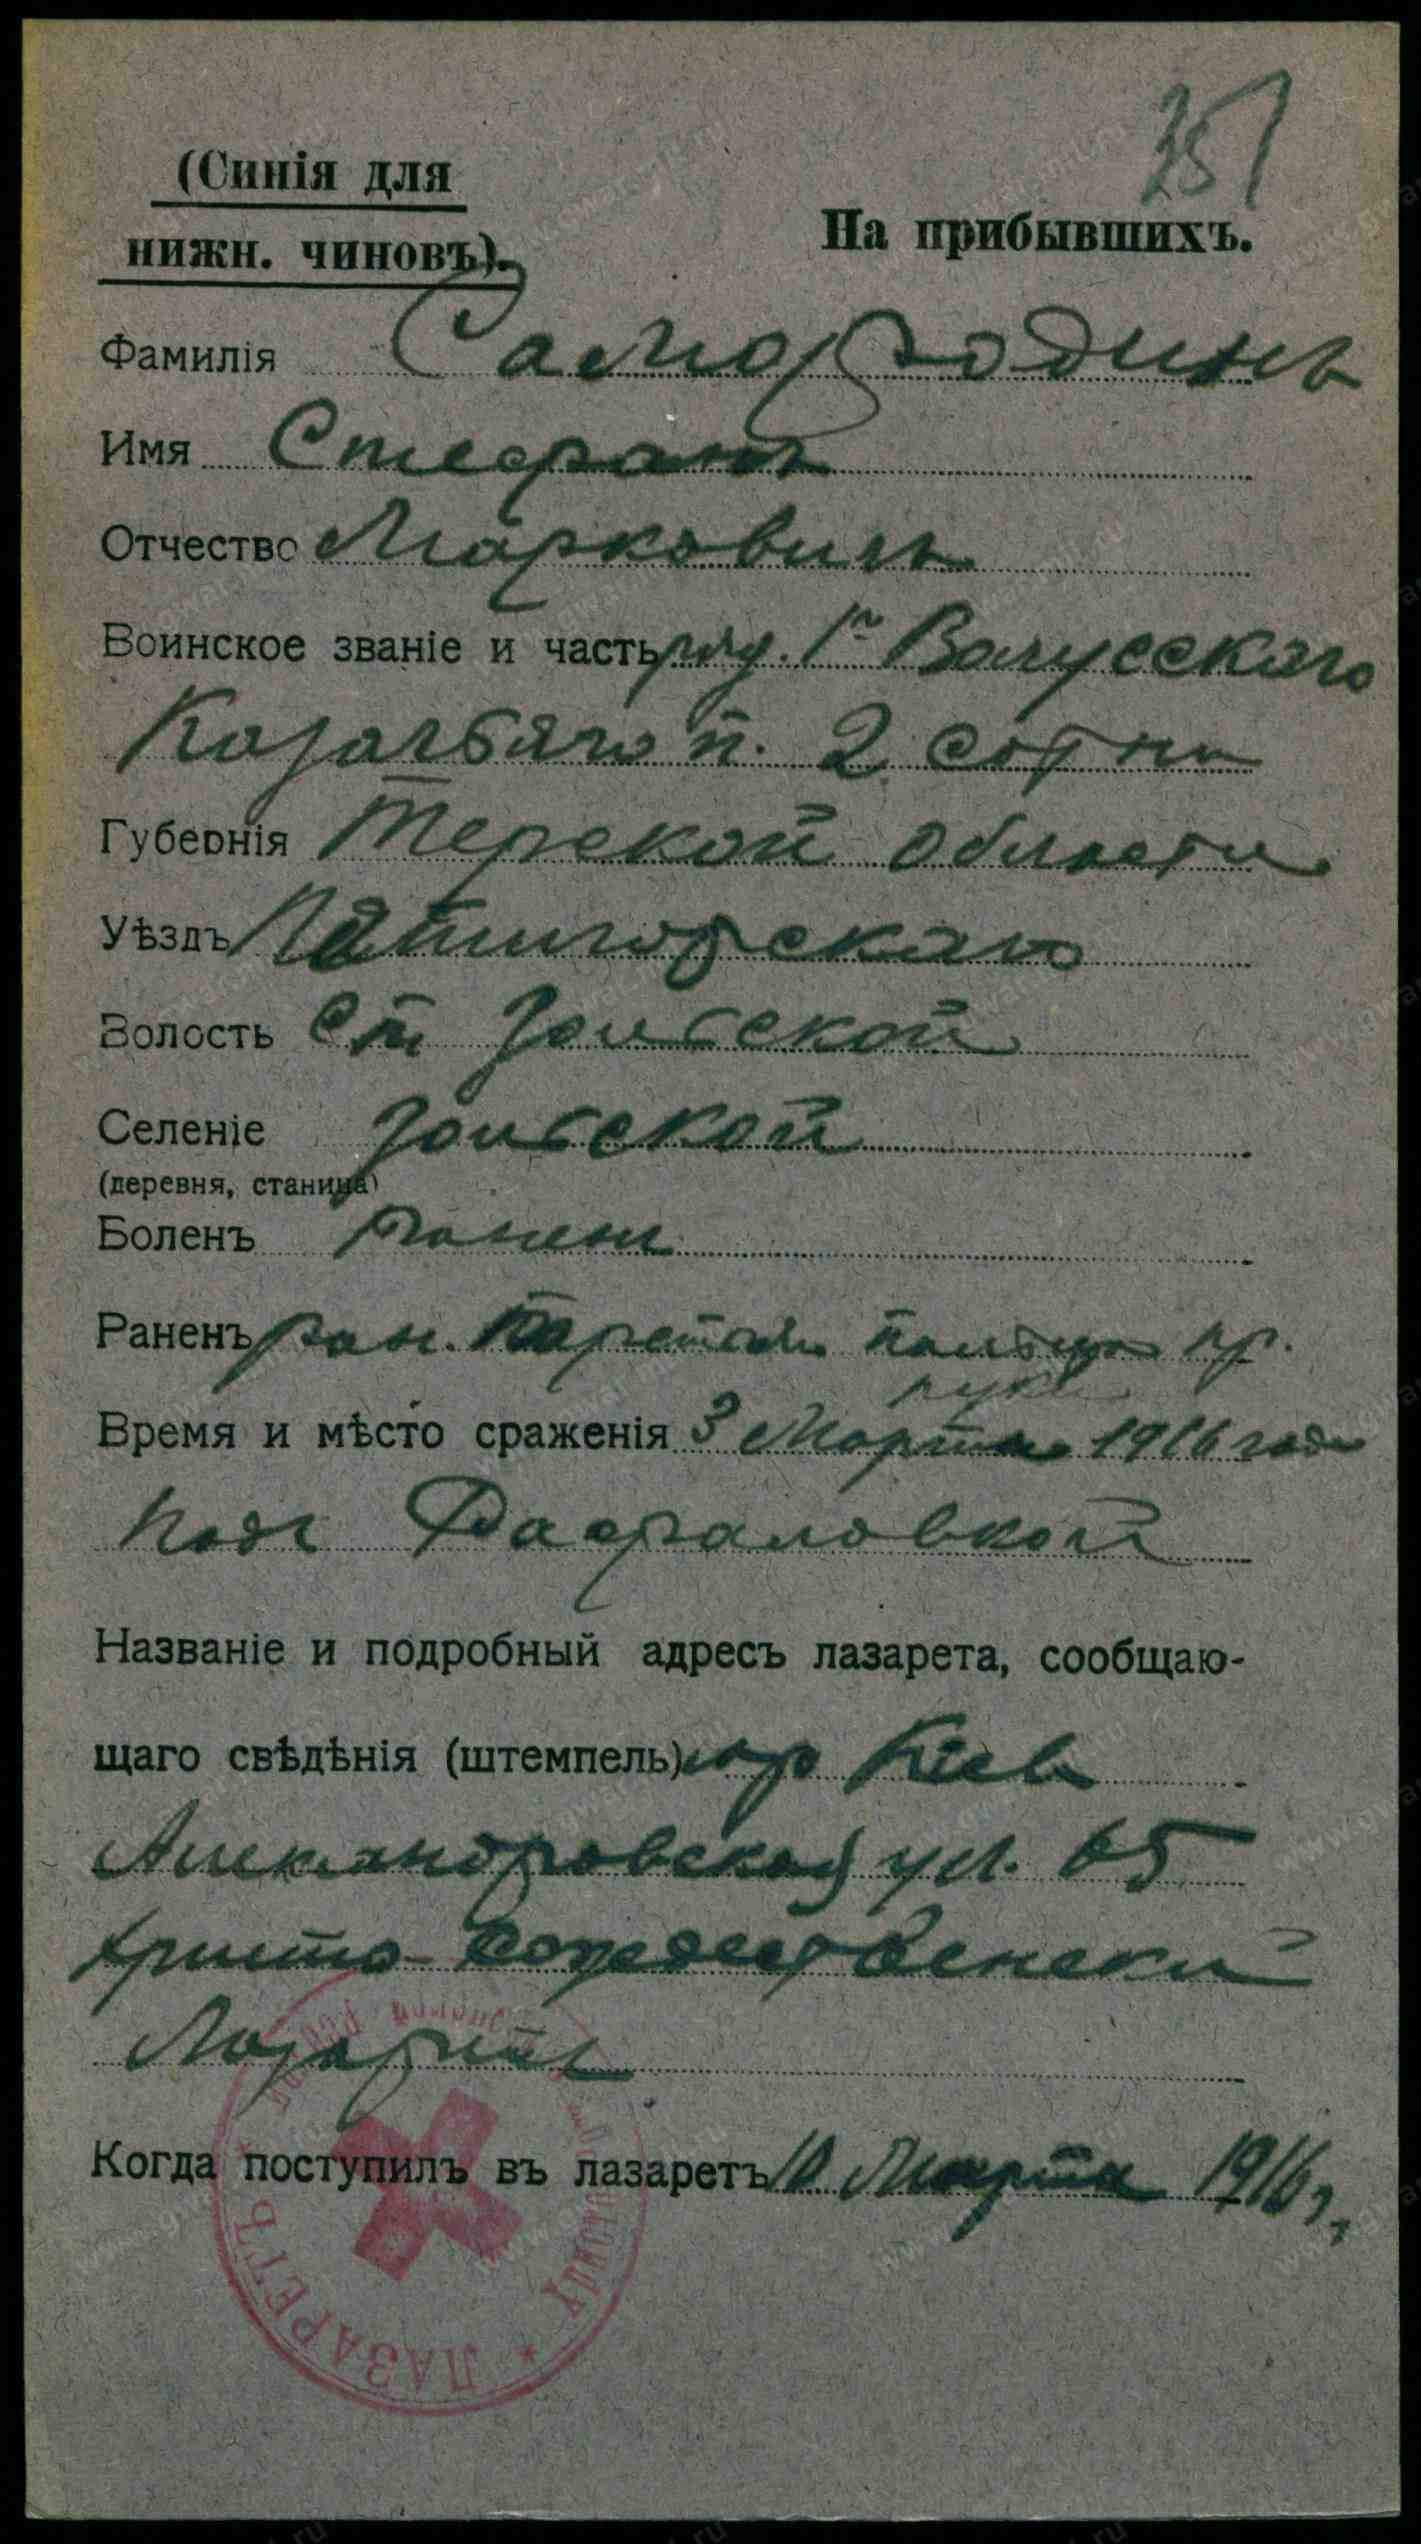 351
(Синія для
нижн. чиновъ).
На прибывшихъ.
Фамилія Самородинъ
Имя Стефанъ
Отчество Марковичъ
Воинское званіе и часть ряд. 1го
Казачьяго п. 2 сотни
Губернія Терской области
Уѣздъ Пятигорскаго
Волость ст Зольской
Селеніе Зольской
(деревня, станица)
Боленъ ранен
Раненъ ран. пр.
руки
Время и мѣсто сраженія 3 Марта 1916 года
подъ
Названіе и подробный адресъ лазарета, сообщаю-
щаго свѣдѣнія (штемпель) гор Кіевъ
Александровская ул. 65
Христо-Рождественский
Лазаретъ
Когда поступилъ въ лазаретъ 10 Марта 1916 г.
ЛАЗАРЕТЪ